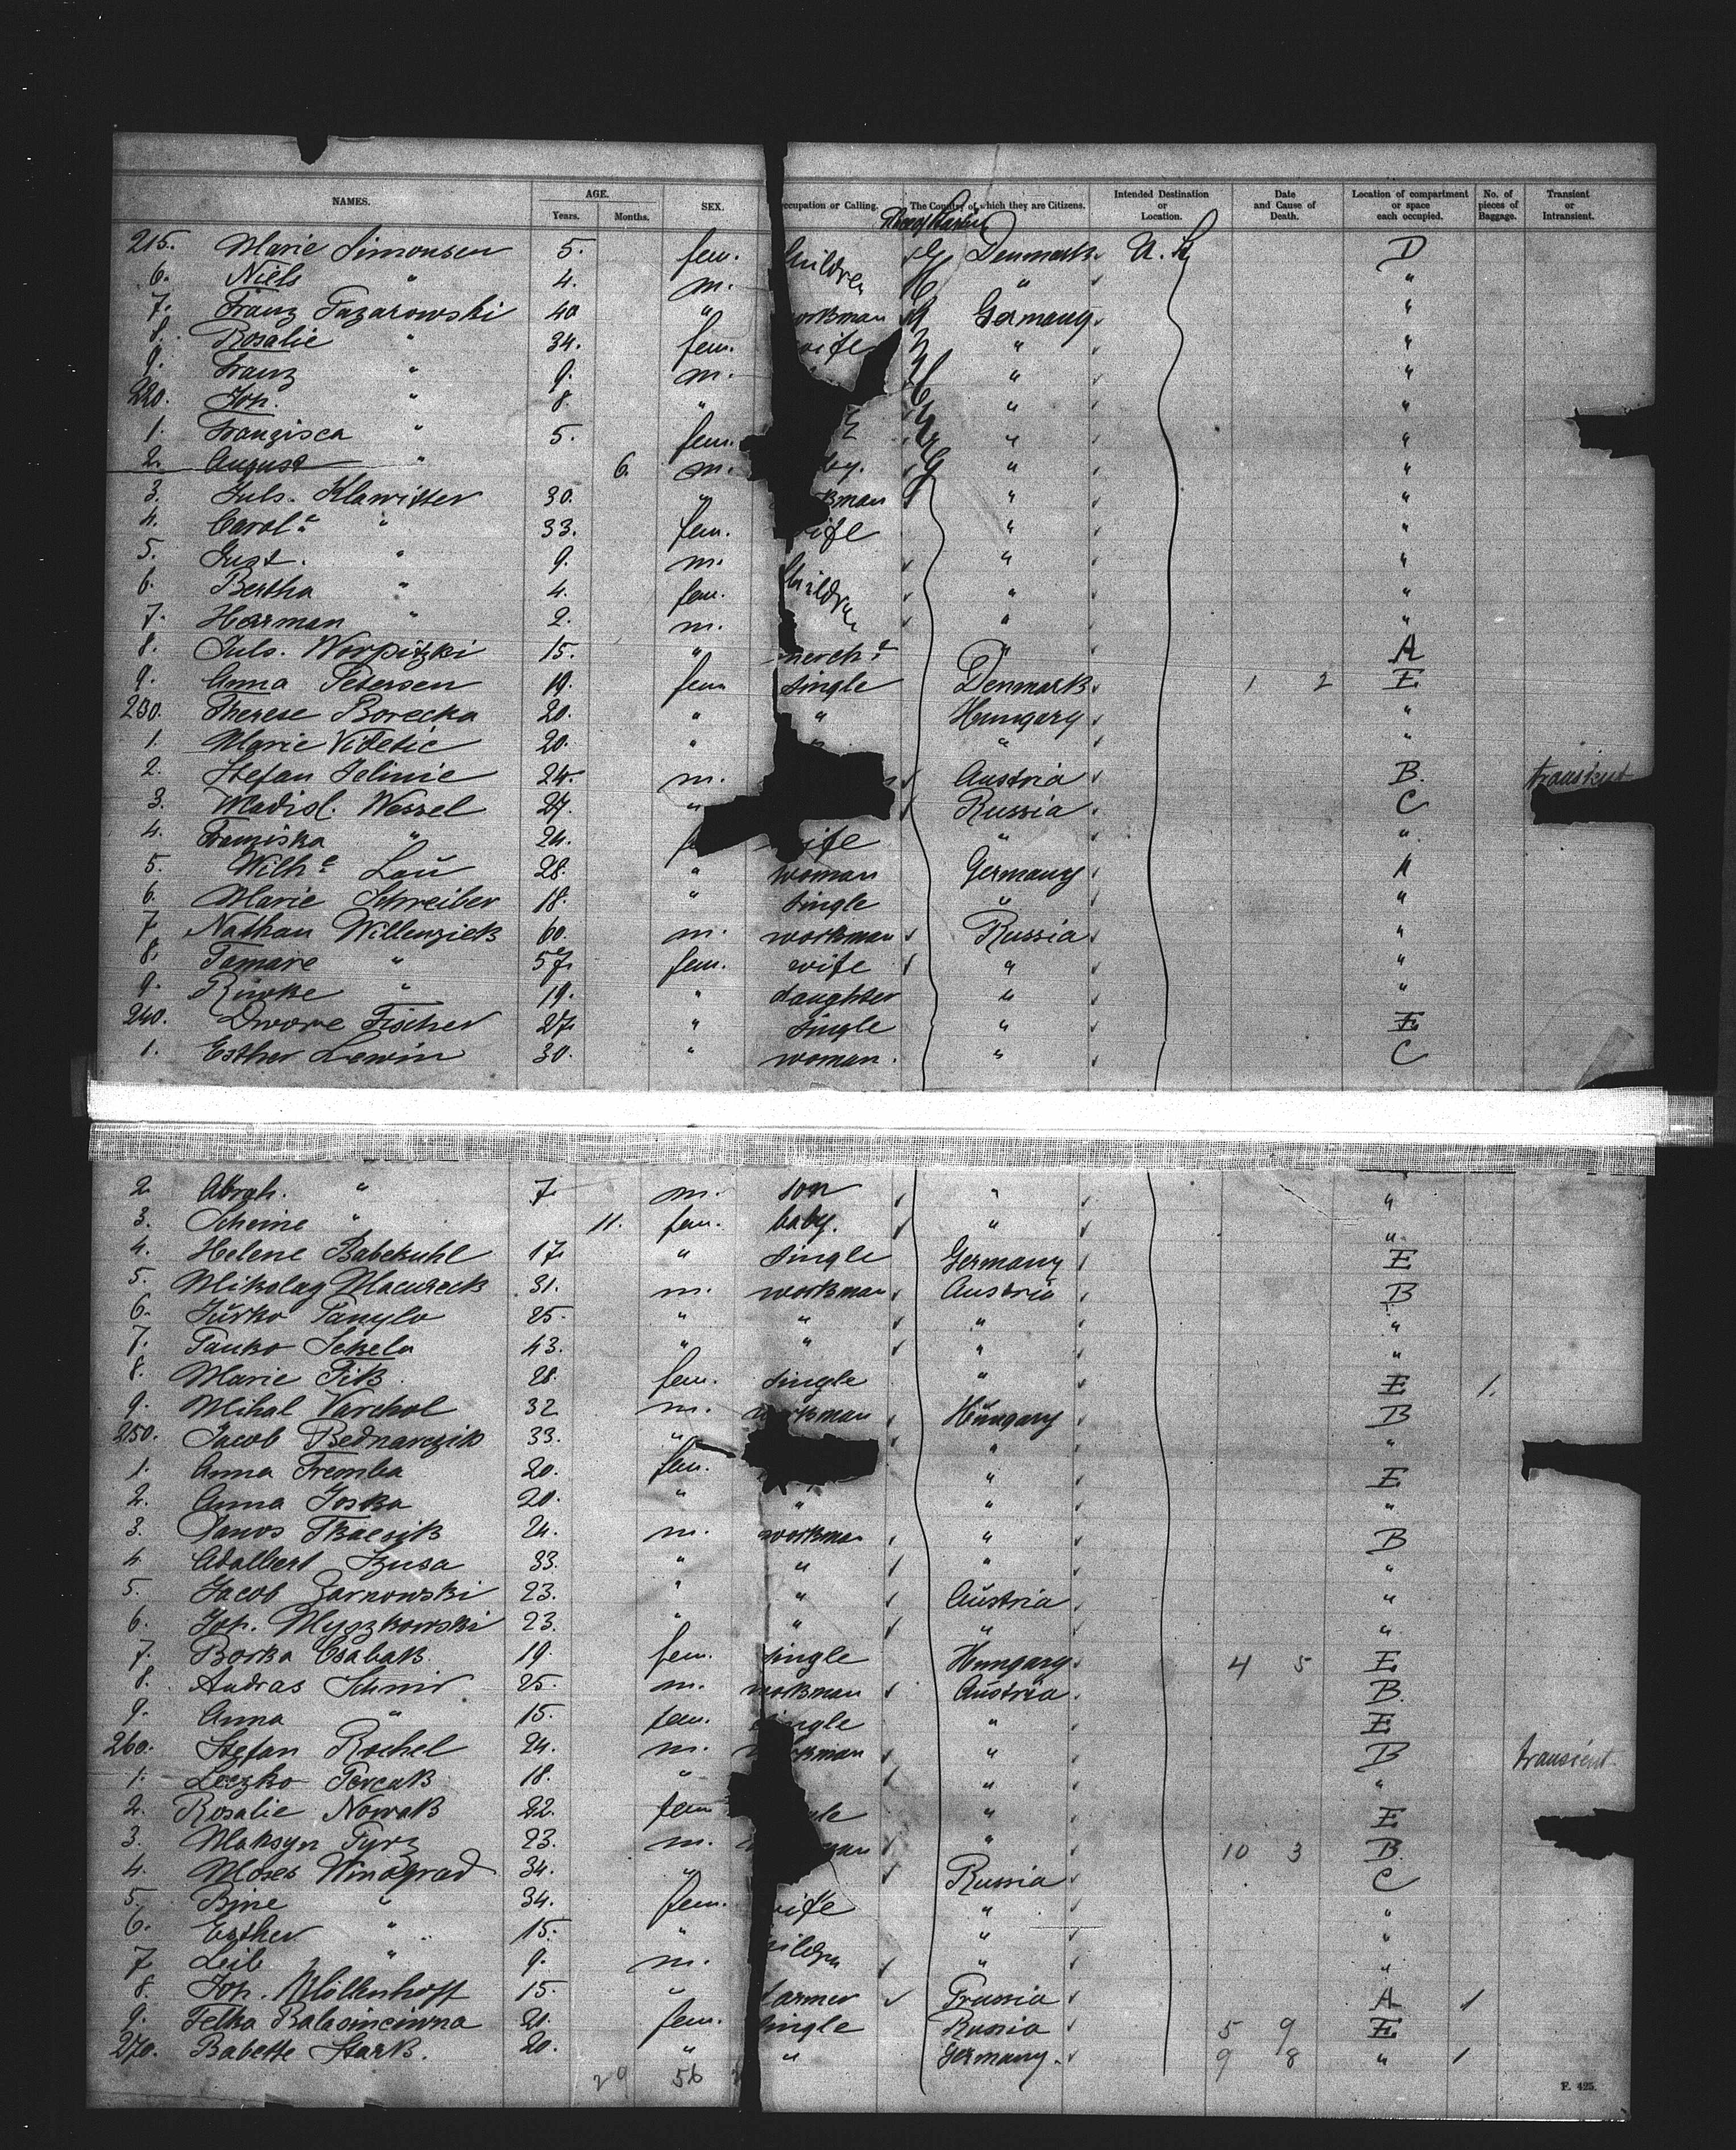 NAMES. AGE. Years. Months. SEX. ccupation or Calling. The Country of which they are Citizens. Intended Destination or Location. Date and Cause of Death. Location of compartment or space each occupied. No. of pieces of Baggage. Transient or Intransient.
215. Marie Simonsen 5. fem. Children Denmark U. S. D
6. Niels " 4. m. " "
7. Franz Tazarowski 40 " workman Germany "
8. Rosalie " 34. fem. wife " "
9. Franz " 9. m. " "
220. Joh. " 8. " " "
1. Franzisca " 5. fem. " "
2. August " 6. m. by. " "
3. Juls. Klawitter 30. " kman " "
4. Carole " 33. fem. wife " "
5. Gust. " 9. m. " "
6. Bertha " 4. fem. Children " "
7. Herman " 2. m. " "
8. Juls. Worpitzki 15. " mercht " A
9. Anna Petersen 19. fem single Denmark 1 2 E
230. Therese Borecka 20. " " Hungary "
1. Marie Videtic 20. " " " "
2. Stefan Jelinic 24. m. Austria B. transient
3. Wladisl. Wessel 27. " Russia C
4. Franziska " 24. f wife " "
5. Wilhe Lau 28. " woman Germany A
6. Marie Schreiber 18. " single " "
7 Nathan Willenziek 60. m. workman Russia "
8. Tamare " 57. fem. wife " "
9. Riwke " 19. " daughter " "
240. Dwore Fischer 27. " single " E
1. Esther Lewin 30. " woman. " C
2 Abrah. " 7. m. son " "
3. Scheine " 11. fem. baby. " "
4. Helene Babekuhl 17. " single Germany E
5. Mikolay Macureck 31. m. workman Austria B
6. Jurko Panylo 25. " " " "
7. Panko Sekela 43. " " " "
8. Marie Fik 28. fem. single " E 1.
9. Mihal Varchol 32 m. workman Hungary B
250. Jacob Bednarczik 33. " " "
1. Anna Fremba 20. fem. " E
2. Anna Joska 20. " " " "
3. Janos Tkacsik 24. m. workman " B
4. Adalbert Szusa 33. " " " "
5. Jacob Zarnowski 23. " " Austria "
6. Joh. Myszkowski 23. " " " "
7. Borka Csabak 19. fem. single Hungary 4 5 E
8. Andras Schmir 25. m. workman Austria B.
9. Anna " 15. fem. single " E
260. Stefan Rochel 24. m. workman " B transient
1. Leszko Percak 18. " " "
2. Rosalie Nowak 22. fem gle " E
3. Maksyn Tyrz 23. m. man " 10 3 B.
4. Moses Winograd 34. " Russia C
5. Bine " 34. fem. wife " "
6. Esther " 15. " children " "
7 Leib " 9. m. " "
8. Joh. Möllenhoff 15. " farmer Prussia A 1
9. Felka Balasinciwna 21. fem. single Russia 5 9 E
270. Babette Stark. 20. " " Germany. 9 8 " 1
29 56
F. 425.